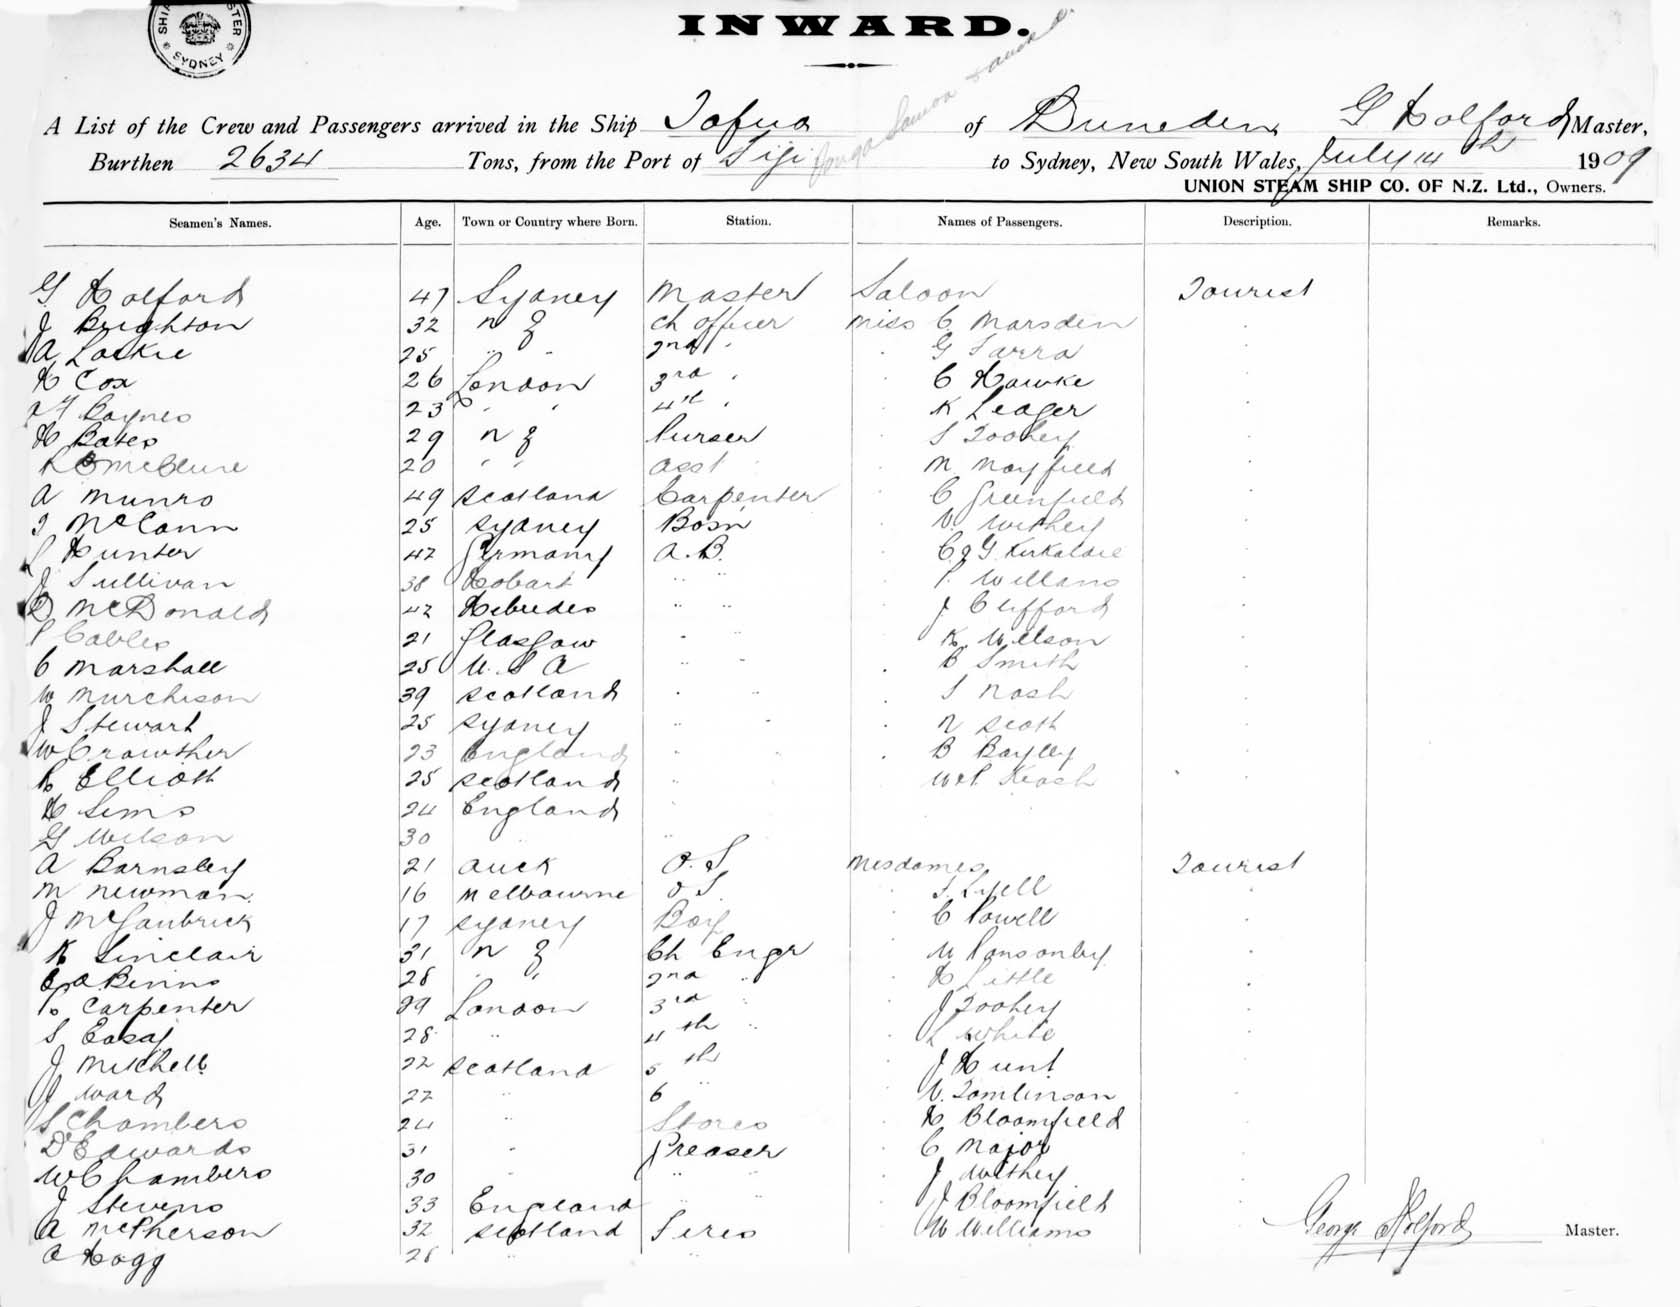 SYDNEY
INWARD.
Tonga Samoa & Auckd.
A List of the Crew and Passengers arrived in the Ship Tofua of Dunedin, G Holford Master,
Burthen 2634 Tons, from the Port of Fiji to Sydney, New South Wales, July 14th 1909
UNION STEAM SHIP CO. OF N.Z. Ltd., Owners.
Seamen's Names. Age. Town or Country where Born. Station. Names of Passengers. Description. Remarks.
G Holford 47 Sydney Master Saloon Tourist
J Brighton 32 N Z Ch Officer Miss C Marsden
A Laskie 25 " " 2nd " " G Sarra
H Cox 26 London 3rd " " C Hawke
Baynes 23 " " 4th " " K Leager
H Bates 29 N Z Purser " S Toohey
McClure 20 " " Asst " M Mayfield
A Munro 49 Scotland Carpenter " C Greenfield
T McCann 25 Sydney Bosn " V. Withey
Hunter 42 Germany A.B. " C & G Kirkaldie
J Sullivan 38 Hobart " " " Willans
D McDonald 42 Hebrides " " " J Clifford
P Cables 21 Glasgow " " " K. Wilson
C Marshall 25 U. S A " " " B Smith
W Murchison 39 Scotland " " " S Nash
J Stewart 25 Sydney " " " N Scott
W Crowther 23 England " " " B Bayley
R Elliott 25 Scotland " W & P Keash
H Sims 24 England "
G Wilson 30 " "
A Barnsley 21 Auck O.S Mesdames Tourist
M Newman 16 Melbourne O S " S. Lyell
J McGaubrick 17 Sydney Boy " C Powell
K Sinclair 31 N Z Ch Engr " M Ponsonby
C A Binns 28 " " 2nd " " H Little
P Carpenter 29 London 3rd " " J Toohey
S Easay 28 " 4th " " L White
J Mitchell 22 Scotland 5th " J Hunt
J Ward 22 " 6 " " V. Tomlinson
S Chambers 24 " Stores " H Bloomfield
D Edwards 31 " Greaser " C Major
W Chambers 30 " " " " J Withey
J Stevens 33 England " " " J Bloomfield
A McPherson 32 Scotland Fires " W Williams
George Holford Master.
A Hogg 28 " "